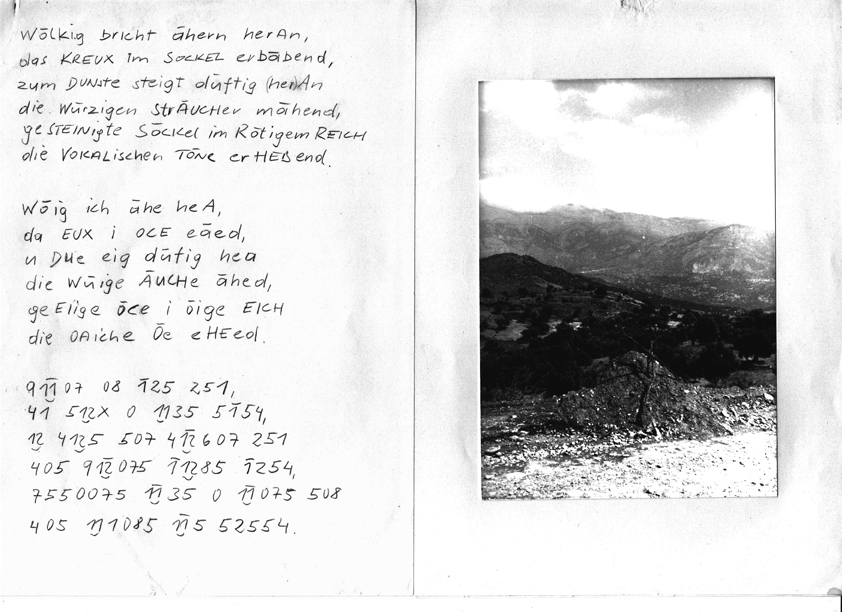 Wōlkig bricht āhern herAn,
das KREUX im SOCKEL erbābend,
zum DUNSTe steigt dūftig (her)An
die Wūrzigen StrÄUCHer māhend,
geSTEINigte SŌCKel im Rōtigem REICH
die VOKALischen TŌNE erHEBend.

Wōig ich āhe heA,
da EUX i OCE eāed,
u DUe eig dūtig hea
die Wūige ĀUCHe āhed,
geEIige ōce i ōige EICH
die OAiche Ōe eHEed.

9 1̄1̮ 07 08 1̄25 251,
41 512̮X 0 1̄1̮35 51̄54,
12̮ 412̮5 507 41̄2̮607 251
405 91̄2̮075 1̄12̮85 1̄254,
7550075 1̄1̮35 0 1̄1̮075 508
405 11̮1085 1̄1̮5 52554.